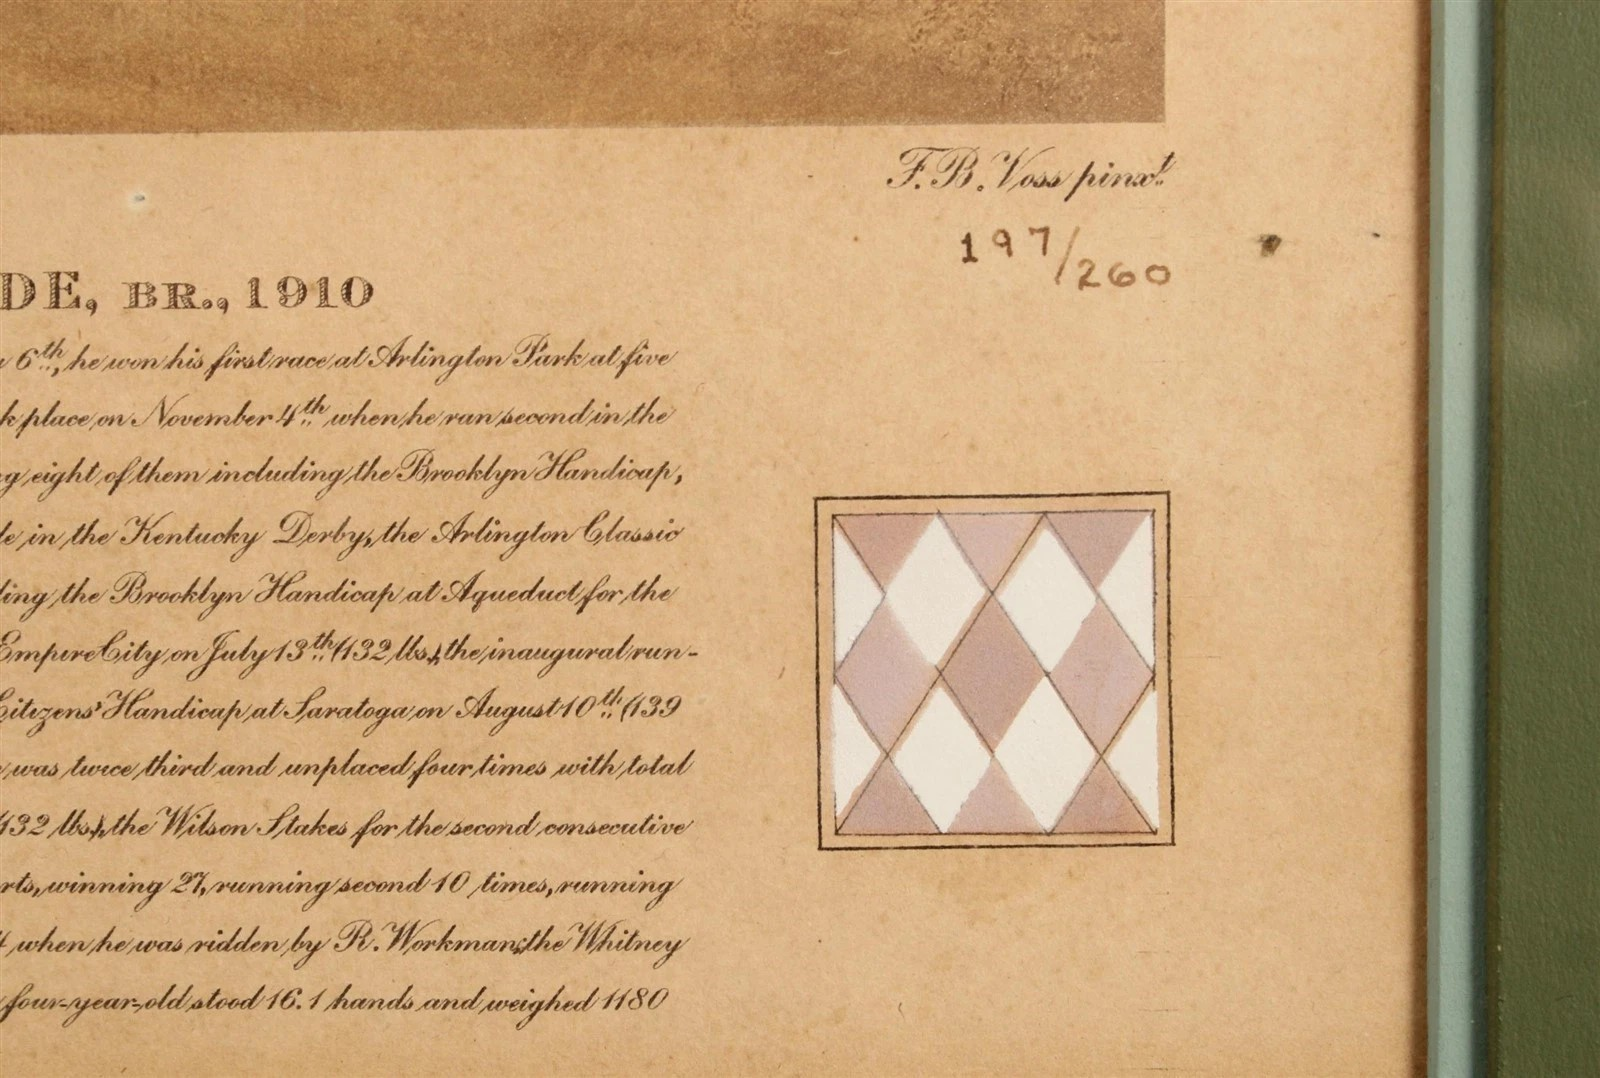 F. B. Voss pinxt.
197/260
DE, BR., 1910
6th, he won his first race at Arlington Park at five
k place on November 4th when he ran second in the
g eight of them including the Brooklyn Handicap,
le in the Kentucky Derby, the Arlington Classic
ling the Brooklyn Handicap at Aqueduct for the
Empire City on July 13th (132 lbs.), the inaugural run-
Citizens' Handicap at Saratoga on August 10th (139
was twice third and unplaced four times with total
132 lbs.), the Wilson Stakes for the second consecutive
rts, winning 27, running second 10 times, running
when he was ridden by R. Workman; the Whitney
four-year-old stood 16.1 hands and weighed 1180